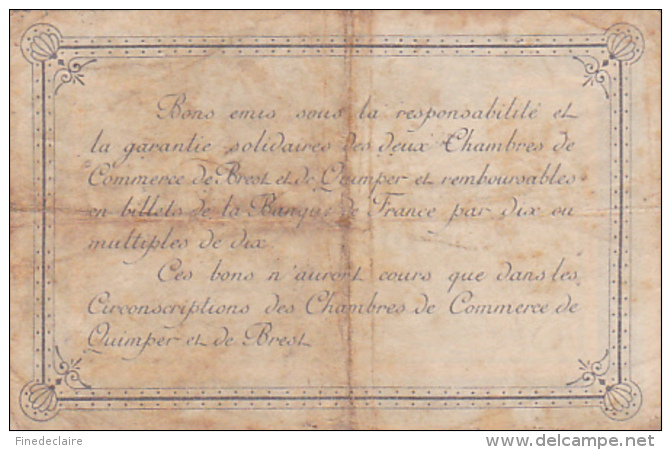 Bons emis sous la responsabilité et
la garantie solidaires des deux Chambres de
Commerce de Brest et de Quimper et remboursables
en billets de la Banque de France par dix ou
multiples de dix
Ces bons n'auront cours que dans les
Circonscriptions des Chambres de Commerce de
Quimper et de Brest
Finedeclaire
delcampe.net